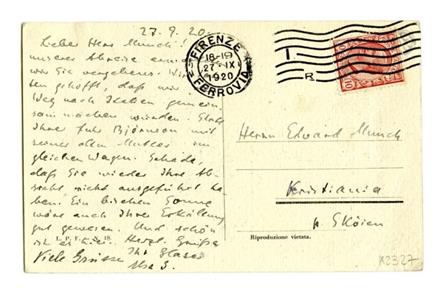 27.9.20.
Lieber Herr Munch! Bei
unserer Abreise
wir Sie vergebens. Wir
ten gehofft, daß wir
Weg nach Italien gemein
sam machen würden. Statt
Ihrer fuhr Björnson mit
seiner alten Mutter im
gleichen Wagen. Schade,
daß Sie wieder Ihre Ab
sicht nicht ausgeführt ha
ben. Ein bischen Sonne
wäre auch Ihrer Erkältung
gut gewesen. Und schön
ist es hier. Herzl. Grüße
Ihr Glaser
Viele Grüsse
Elsa G.
FIRENZE
18-19
27·IX
1920
FERROVIA
Herrn Edward Munch
Kristiania
p. Sköien
Riproduzione vietata.
K2327